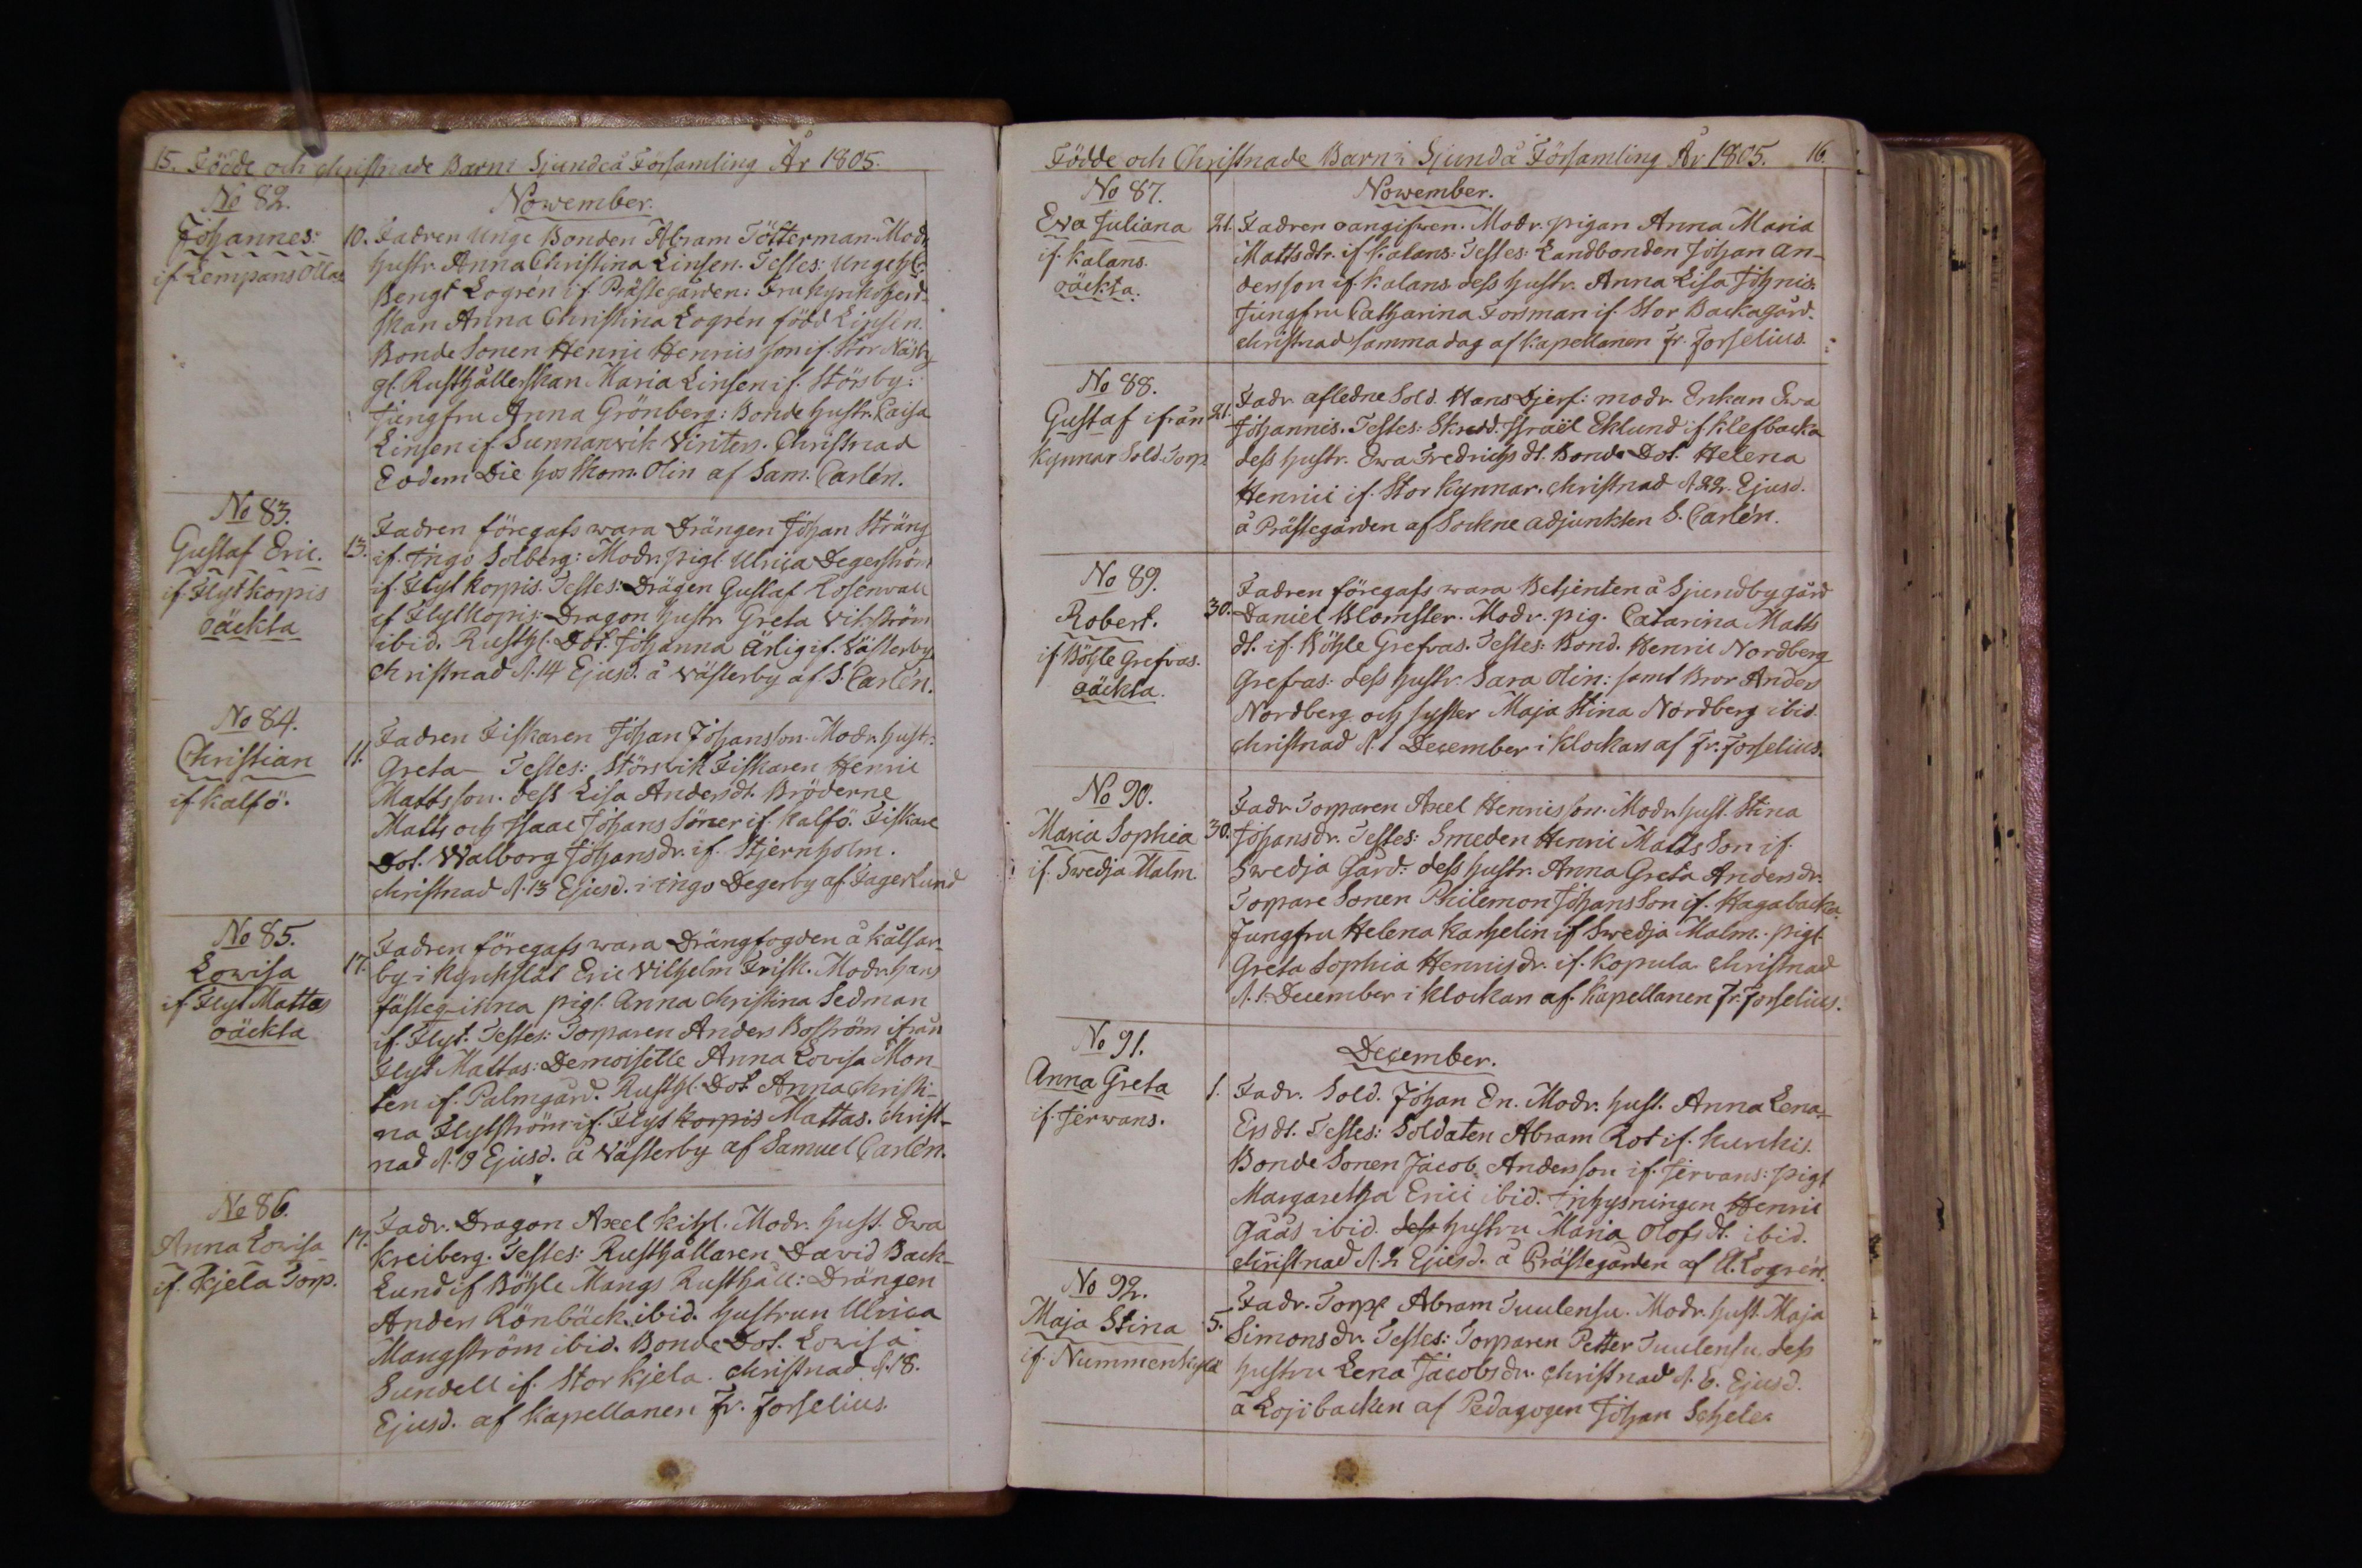 15. Födde och Christnade Barn i Sjundeå Församling År 1805.
No 82.
Johannes:
if. Lempans Ollas
November.
10. Fadren Unge Bonden Abram Tötterman. Modr.
hustr. Anna Christina Linsen. Testes: Unge
Bengt Logren if. Prästegården: Fru Kyrkoherd-
skan Anna Christina Logrén född Linsén.
Bonde Sonen Henric Henrics son if. Stor Näsby
gl. Rusthållerskan Maria Linsen if. Störsby:
Jungfru Anna Grönberg: Bonde hustr. Caisa
Linsen if. Sunnanvik Vinters. Christnad
Eodem Die hos Skom. Olin af Sam. Carlén.
No 83.
Gustaf Eric.
if. Flyt korpis
oäckta
13. Fadren föregafs wara Drängen Johan Sträng
if. Ingo Solberg: Modr. pigl. Ulrica Degerström
if. Flyt korpis. Testes: Drägen Gustaf Rosenvall
if Flyt kopis: Dragon hustr. Greta Vikström
ibid. Rusthl. Dot. Johanna Ärlig if. Västerby
christnad d. 14 Ejusd. å Västerby af S. Carlén.
No 84.
Christian
if kalfö.
11. Fadren Fiskaren Johan Johansson. Modr. hustr:
Greta— Testes: Störsvik Fiskaren Henric
Mattsson. dess Lisa Andersdt. Bröderne
Matts och Isaac Johans Söner if. kalfö. Fiskare
Dot. Walborg Johansdr. if. Stjernholm.
christnad d. 13 Ejusd. i ingo Degerby af Fagerlund
No 85.
Lowisa
if Flyt Mattas
oäckta
17. Fadren föregafs wara Drängfogden å kålsar-
by i kyrkslät Eric Vilhelm Frisk. Modr. hans
fästeq-inna pigl. Anna Christina Sedman
if. Flyt. Testes: Torparen Anders Boström ifrån
Flyt Mattas: Demoiselle Anna Lovisa Mon-
ten if. Palmgård. Rusthl. Dot Anna Christi-
na Flytström if. Flyt korpis Mattas. christ-
nad d. 19 Ejusd. å Västerby af Samuel Carlén.
No 86.
Anna Lovisa
if. Kjela Torp.
17. Fadr. Dragon Axel kihl. Modr. hust. Ewa
Kreiberg. Testes: Rusthållaren David Back-
Lund if Böhle Mangs Rusthåll: Drängen
Anders Rönbäck ibid. hustrun Ulrica
Mangström ibid. Bonde Dot. Lovisa
Sundell if. Stor kjela. christnad d. 18.
Ejusd. af kapellanen Fr. Forselius.
Födde och Christnade Barn i Sjundå Församling År 1805. 16.
No 87.
Eva Juliana
if. kalans.
oäckta:
Nowember.
21. Fadren oangifwen. Modr. pigan Anna Maria
Mattsdtr. if. kalans: Testes: Landbonden Johan An-
dersson if. kalans. dess hustr. Anna Lisa Johnis.
Jungfru Catharina Forsman if. Stor Backagård.
christnad samma dag af kapellanen Fr. Forselius.
No 88.
Gustaf ifrån
Kynnar Sold. Torp
21. Fadr. afledne Sold. Hans Djerf: modr. Enkan Ewa
Johannis. Testes: Skredd. Israël Eklund if klefbacka
dess hustr. Ewa Fredrichs dt. Bonde Dot. Helena
Henrici if. Stor kynnar. christnad d. 22. Ejusd.
å Prästegården af Sockne adjunkten S. Carlén.
No 89.
Robert.
if Böhle Grefvas.
oäckta.
30. Fadren föregafs wara Betjenten å Sjundby gård
Daniel Blomster. Modr. pig. Catarina Matts
dt. if. Böhle Grefvas. Testes: Bond. Henric Nordberg
Grefvas: dess hustr. Sara Olin: samt Bror Anders
Nordberg och syster Maja Stina Nordberg ibid.
christnad d. 1 December i klockars af Fr. Forselius.
No 90.
Maria Sophia
if. Swedja Malm
30. Fadr Torparen Axel Henrisson. Modr hust. Stina
Johansdr. Testes: Smeden Henric Matts Son if
Swedja Gård: dess hustr. Anna Greta Andersdr.
Torpare Sonen Philemon Johans Son if. Hagabacka.
Jungfru Helena Karhelin if Swedja Malm. pigl.
Greta Sophia Henrisdr. if. kopula. christnad
d. 1. December i klockars af. kapellanen Fr. Forselius.
No 91.
Anna Greta
if. Jerwans.
December.
1. Fadr. Sold. Johan En. Modr. hust. Anna Lena-
Ersdt. Testes: Soldaten Abram Rot if. kurckis.
Bonde Sonen Jacob Andersson if. Jervans: pigl
Margaretha Erici ibid. Inhysningen Henric
Gåås ibid. dess hustru Maria Olofsdt. ibid.
christnad d. 2 Ejusd. å Prästegården af A. Logrén.
No 92.
Maja Stina
if. Nummenkylä
5. Fadr. Torp. Abram Tuulensu. Modr. hust. Maja
Simonsdr. Testes: Torparen Petter Tuulensu, dess
hustru Lena Jacobsdr. christnad d. 6. Ejusd.
å Lojobacken af Pedagogen Johan Schele.